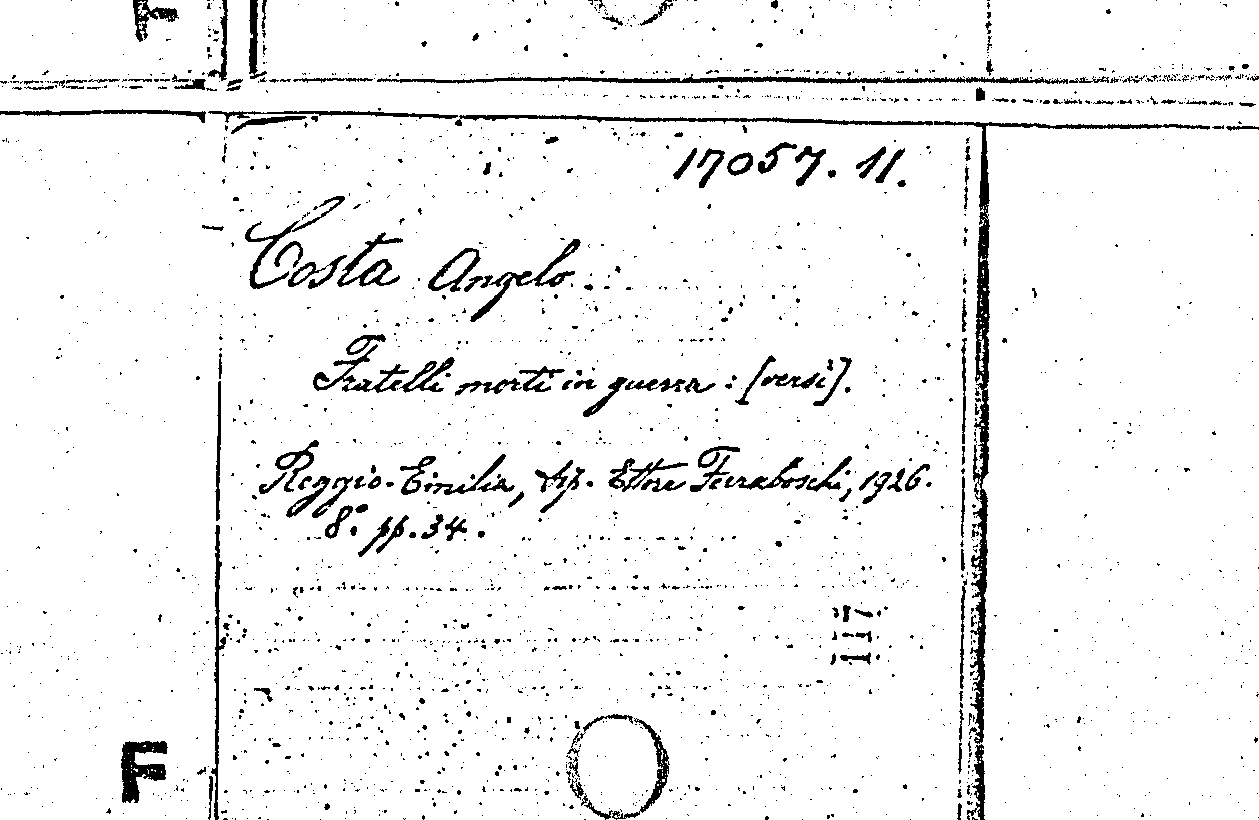 F
17057. 11.
Costa Angelo
Fratelli morti in guerra : [versi].
Reggio-Emilia, tip. Ettore Ferraboschi, 1926.
8.° pp. 34.
117
F